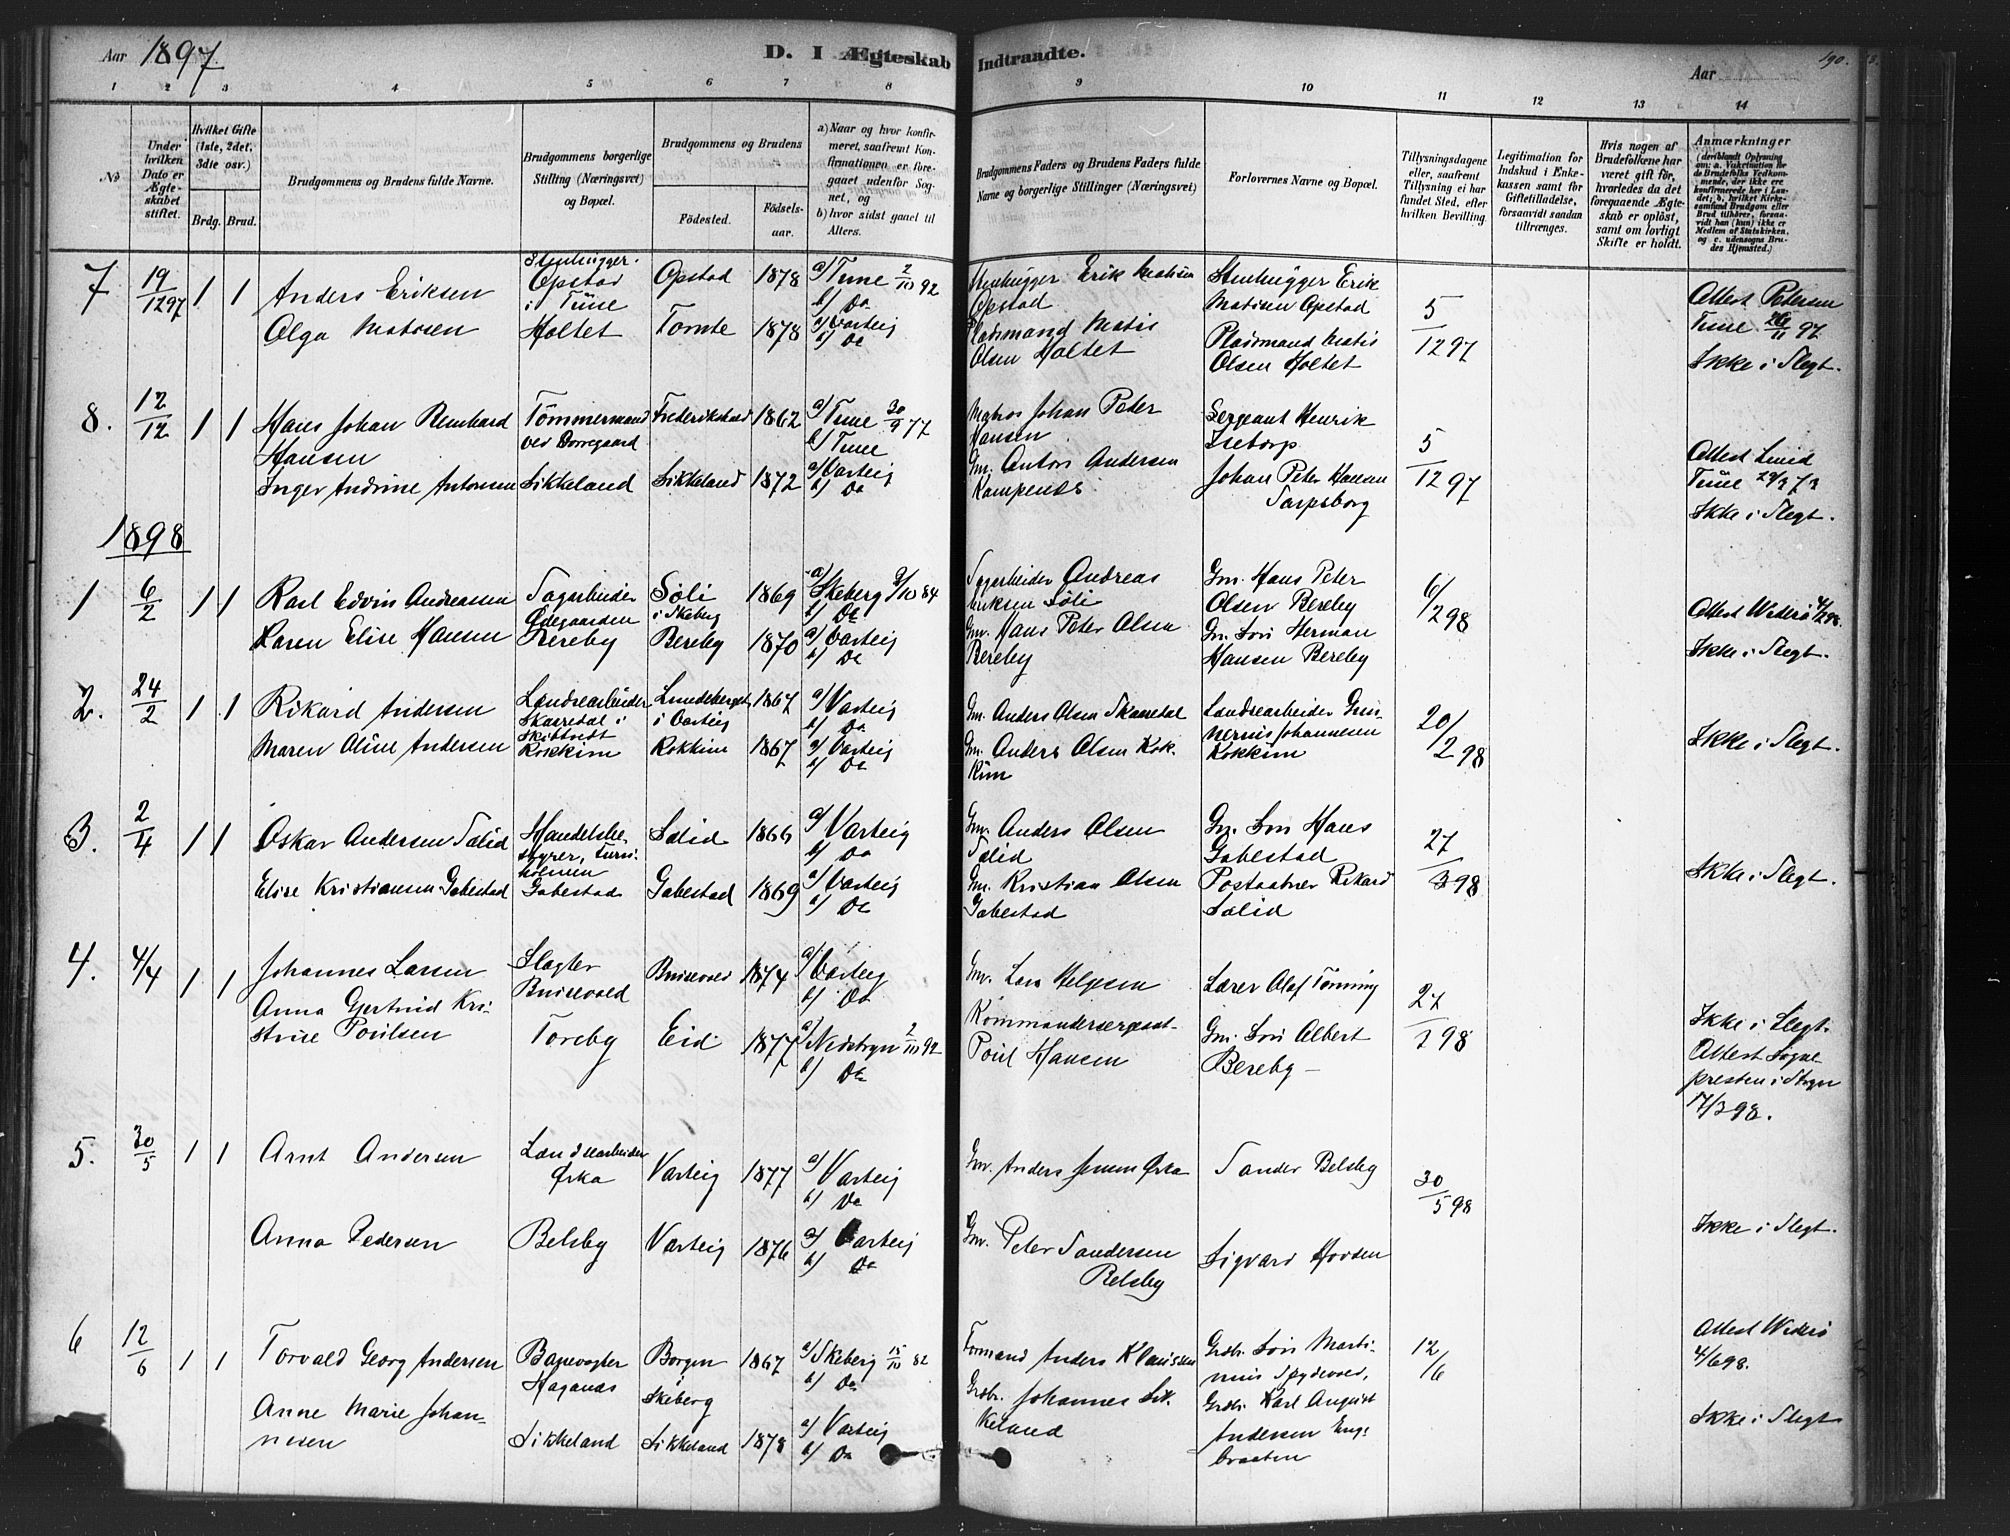 Aar 1897
D. I Ægteskab Indtraadte.
Aar
190.
1 2 3 4 5 6 7 8 9 10 11 12 13 14
No
Under hvilken Dato er Ægteskabet stiftet.
Hvilket Gifte (1ste, 2det, 3die osv.)
Brdg. Brud.
Brudgommens og Brudens fulde Navne.
Brudgommens borgerlige Stilling (Næringsvei) og Bopæl.
Brudgommens og Brudens
Fødested.
Fødselsaar.
a) Naar og hvor konfirmeret, saafremt Konfirmationen er foregaaet udenfor Sognet, og
b) hvor sidst gaaet til Alters.
Brudgommens Faders og Brudens Faders fulde Navne og borgerlige Stillinger (Næringsvei)
Forlovernes Navne og Bopæl.
Tillysningsdagene eller, saafremt Tillysning ei har fundet Sted, efter hvilken Bevilling.
Legitimation for Indskud i Enkekassen samt for Giftetilladelse, forsaavidt saadan tiltrænges.
Hvis nogen af Brudefolkene har været gift før, hvorledes da det foregaaende Ægteskab er opløst, samt om lovligt Skifte er holdt.
Anmærkninger
7 19/12 97 1 1 Anders Eriksen
Stenhugger. Opstad i Tune
Opstad 1878 a) Tune 2/10 92 b) Do
Stenhugger Erik Matisen Opstad
Stenhugger Erik Matisen Opstad
5/12 97
Attest Petersen Tune 26/11 97
Olga Matisen Holtet Tomte 1878 a) Varteig b) Do
Pladsmand Matis Olsen Holtet
Pladsmand Matis Olsen Holtet
Ikke i Slegt.
8. 12/12 1 1 Hans Johan Reinhard Hansen
Tømmermand ved Borregaard
Frederikstad 1862 a) Tune 30/9 77 b) Tune
Matros Johan Peter Hansen
Sergeant Henrik Isetorp.
5/12 97
Inger Andrine Antonsen Sikkeland Sikkeland 1872 a) Varteig b) Do
Gm. Anton Andersen
Johan Peter Hansen Sarpsborg
Ikke i Slegt.
1898
1 6/2 1 1 Karl Edvin Andreassen
Sagarbeider Ødegaarden
Søli i Skeberg 1869 a) Skeberg 3/10 84 b) Do
Sagarbeider Andreas Eriksen Søli
Gm. Hans Peter Olsen Bereby
6/2 98
Attest Widerø 4/2 98.
Karen Elise Hansen Bereby Bereby 1870 a) Varteig b) Do
Gm. Hans Peter Olsen Bereby
Gm. Søn Herman Hansen Bereby
Ikke i Slegt.
2. 24/2 1 1 Rikard Andersen
Landsearbeider Skarredal i Skibtvedt
Lundeberget i Varteig 1867 a) Varteig b) Do
Gm. Anders Olsen Skarredal
Landsearbeider Gunnerius Johannesen Kokkim
20/2 98
Maren Oline Andersen Kokkim Kokkim 1867 a) Varteig b) Do
Gm. Anders Olsen Kokkim
Ikke i Slegt.
3. 2/4 1 1 Oskar Andersen Sælid
Handelsbestyrer,
Sælid 1866 a) Varteig b) Do
Gm. Anders Olsen Sælid
Gm. Søn Hans Gabestad
27/3 98
Elise Kristiansen Gabestad Gabestad Gabestad 1869 a) Varteig b) Do
Gm. Kristian Olsen Gabestad
Postaabner Rikard Sælid
Ikke i Slegt.
4. 4/4 1 1 Johannes Larsen
Slagter
1874 a) Varteig b) Do
Gm. Lars Helgesen
Lærer Olaf Tønning
27/3 98
Anna Gjertrud Kristine Poulsen Toreby Eid 1877 a) Nedstryn 2/10 92 b) Do
Kommandersergeant Poul Hansen
Gm. Søn Albert Bereby
Ikke i Slegt.
Attest Sognepresten i Stryn 17/3 98.
5. 30/5 1 1 Arnt Andersen
Landsearbeider Ørka
Varteig 1877 a) Varteig b) Do
Gm. Anders Jensen Ørka
Sander Belsby
30/5 98
Anna Pedersen Belsby Varteig 1876 a) Varteig b) Do
Gm. Peter Sandersen Belsby
Sigvard Hovden
Ikke i Slegt.
6 12/6 1 1 Torvald Georg Andersen
Banevogter Høganas
Borgen Skeberg 1867 a) Skeberg 15/10 82 b) Do
Formand Anders Klaussen
Grdbr. Søn Martinius Spydevold,
12/6
Attest Widerø 4/6 98.
Anne Marie Johannesen Sikkeland Sikkeland 1878 a) Varteig b) Do
Grdbr. Johannes Sikkeland
Grdbr. Karl August Andersen Engebraaten
Ikke i Slegt